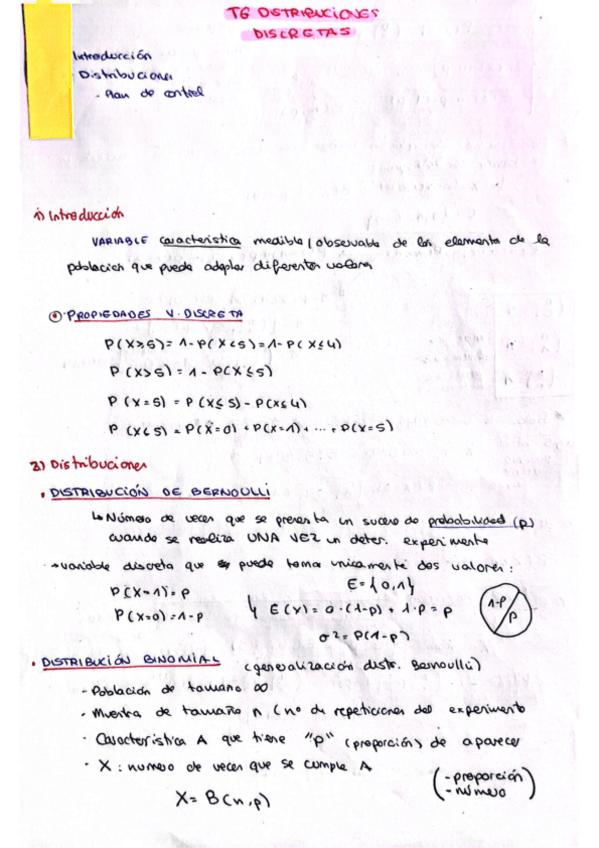 T6 DISTRIBUCIONES
DISCRETAS
Introducción
Distribuciones
- Plan de control
1) Introducción
VARIABLE característica medible / observable de los elementos de la
población que puede adoptar diferentes valores
PROPIEDADES V. DISCRETA
P(X≥5) = 1 - P(X<5) = 1 - P(X≤4)
P(X>5) = 1 - P(X≤5)
P(X=5) = P(X≤5) - P(X≤4)
P(X≤5) = P(X=0) + P(X=1) + ... + P(X=5)
2) Distribuciones
· DISTRIBUCIÓN DE BERNOULLI
↳ Número de veces que se presenta un suceso de probabilidad (p)
cuando se realiza UNA VEZ un deter. experimento
→ variable discreta que puede tomar unicamente dos valores:
E = {0,1}
P(X=1) = p
E(X) = 0·(1-p) + 1·p = p
1-p
p
P(X=0) = 1-p
σ² = P(1-p)
· DISTRIBUCIÓN BINOMIAL (generalización distr. Bernoulli)
- Población de tamaño ∞
- Muestra de tamaño n (nº de repeticiones del experimento
· Característica A que tiene "p" (proporción) de aparecer
· X: numero de veces que se cumple A
(- proporción
- número)
X = B(n,p)